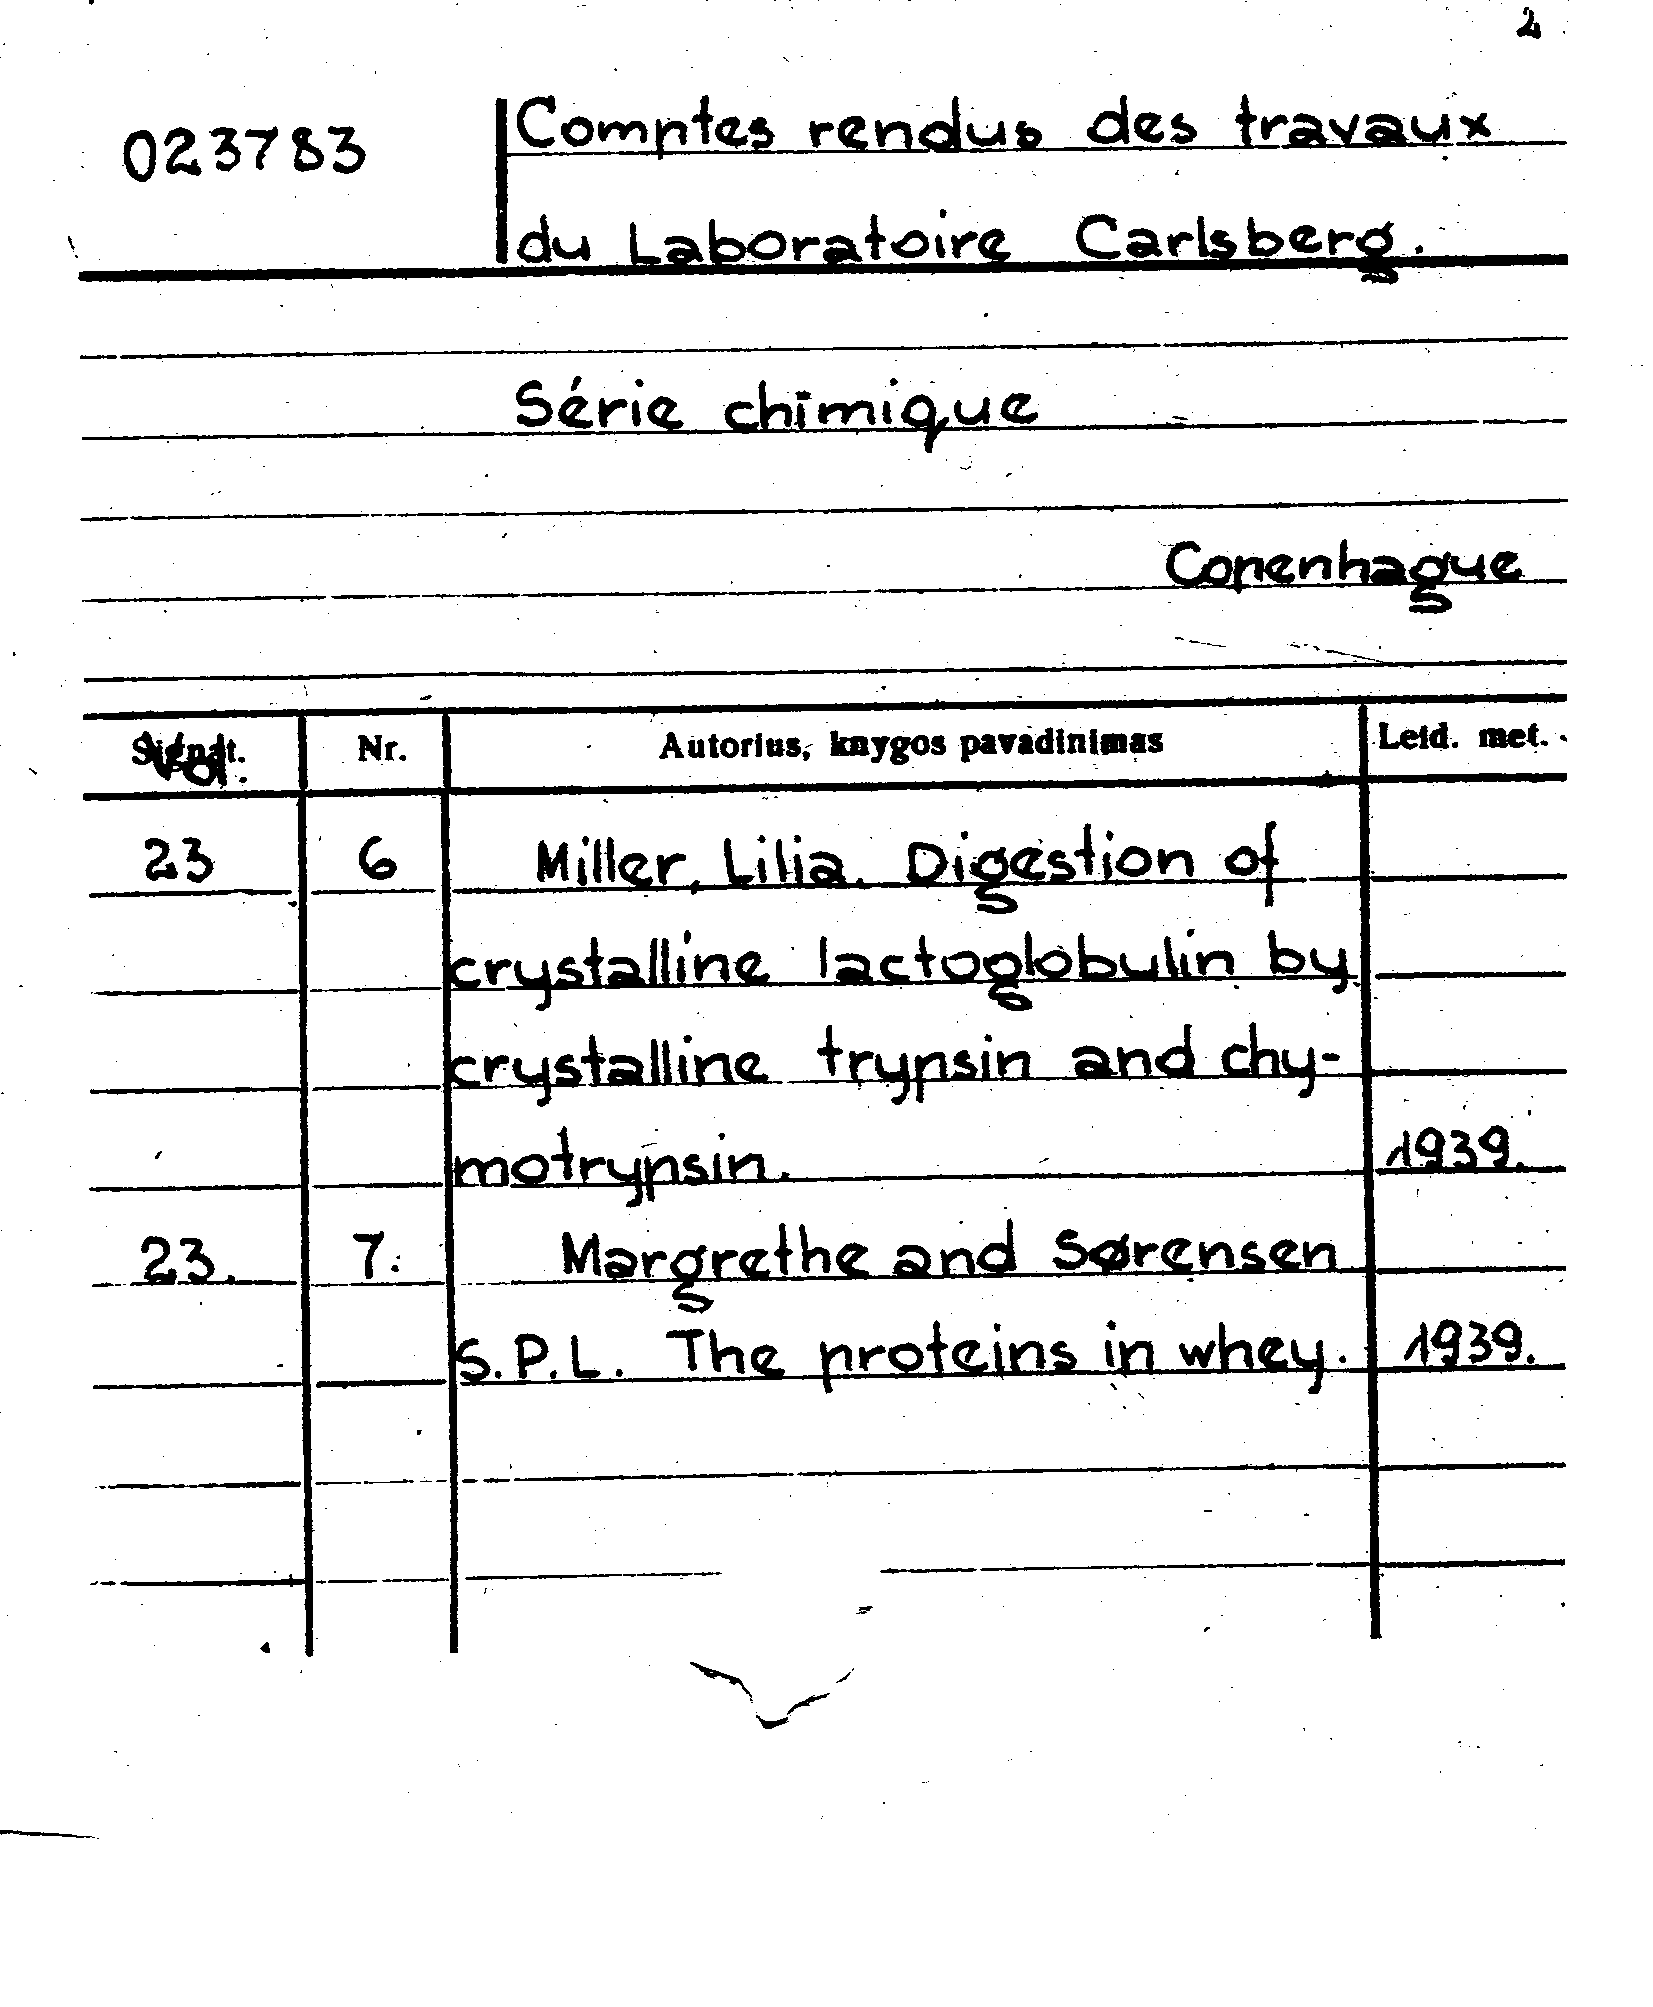 2
023783 Comptes rendus des travaux
du Laboratoire Carlsberg.
Série chimique
Copenhague
Signat. Nr. Autorius, knygos pavadinimas Leid. met.
Vol.
23 6 Miller, Lilia. Digestion of
crystalline lactoglobulin by
crystalline trypsin and chy-
motrypsin. 1939.
23. 7. Margrethe and Sørensen
S.P.L. The proteins in whey. 1939.